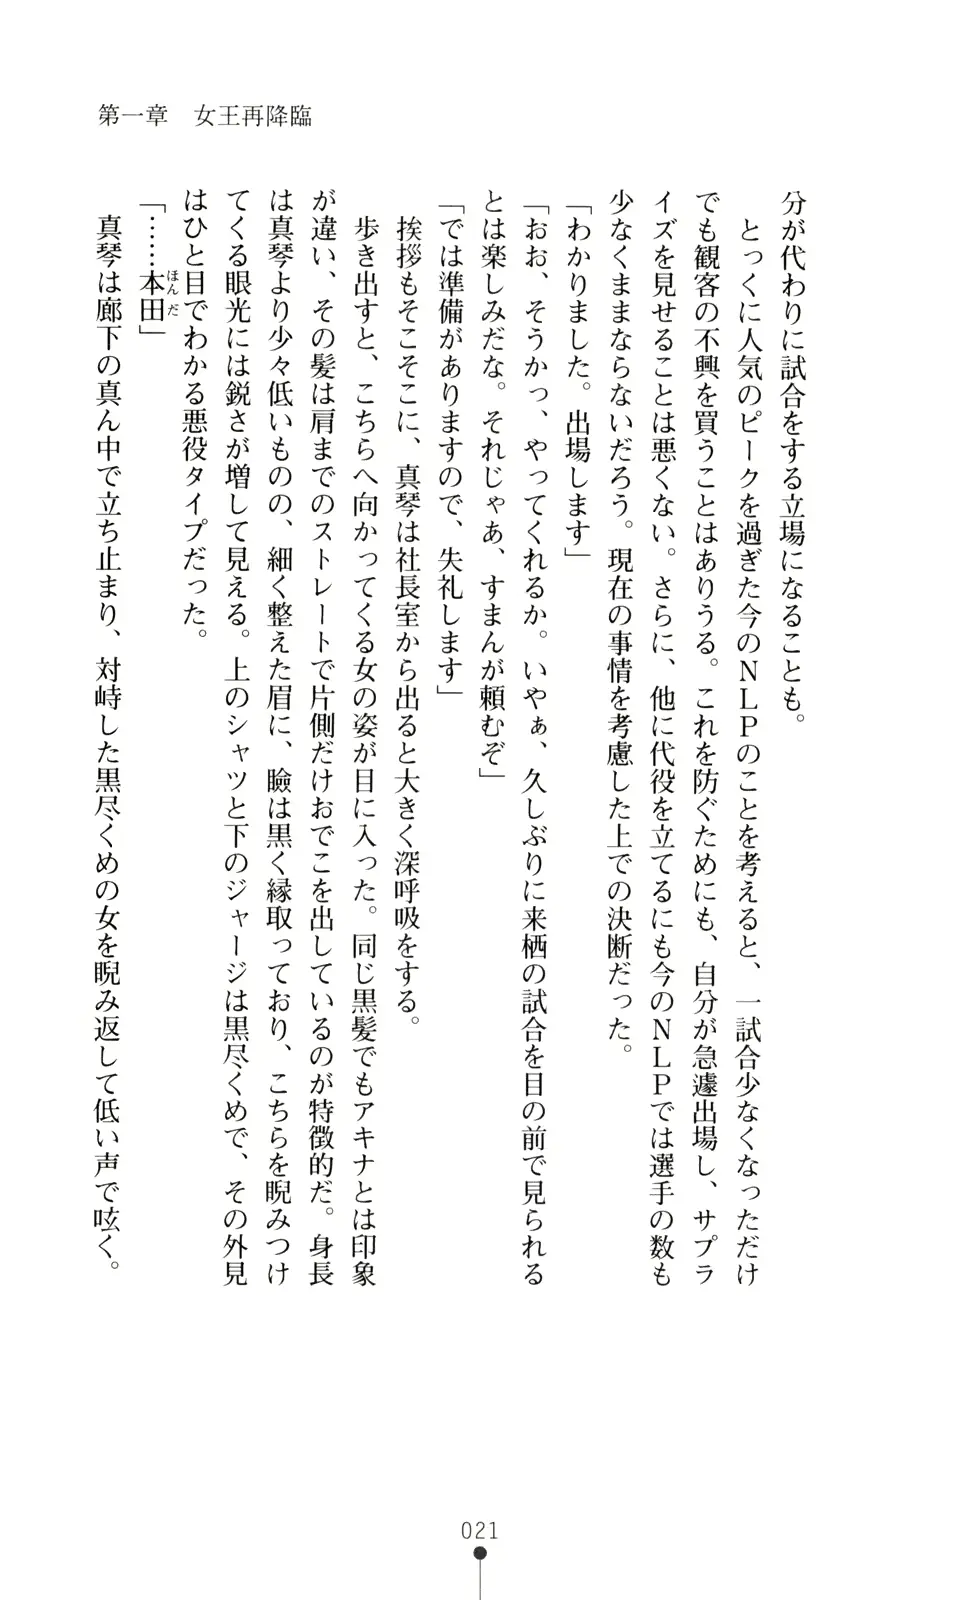 第一章　女王再降臨
分が代わりに試合をする立場になることも。
　とっくに人気のピークを過ぎた今のＮＬＰのことを考えると、一試合少なくなっただけ
でも観客の不興を買うことはありうる。これを防ぐためにも、自分が急遽出場し、サプラ
イズを見せることは悪くない。さらに、他に代役を立てるにも今のＮＬＰでは選手の数も
少なくままならないだろう。現在の事情を考慮した上での決断だった。
「わかりました。出場します」
「おお、そうかっ、やってくれるか。いやぁ、久しぶりに来栖の試合を目の前で見られる
とは楽しみだな。それじゃあ、すまんが頼むぞ」
「では準備がありますので、失礼します」
　挨拶もそこそこに、真琴は社長室から出ると大きく深呼吸をする。
　歩き出すと、こちらへ向かってくる女の姿が目に入った。同じ黒髪でもアキナとは印象
が違い、その髪は肩までのストレートで片側だけおでこを出しているのが特徴的だ。身長
は真琴より少々低いものの、細く整えた眉に、瞼は黒く縁取っており、こちらを睨みつけ
てくる眼光には鋭さが増して見える。上のシャツと下のジャージは黒尽くめで、その外見
はひと目でわかる悪役タイプだった。
「……本田」
ほんだ
　真琴は廊下の真ん中で立ち止まり、対峙した黒尽くめの女を睨み返して低い声で呟く。
021